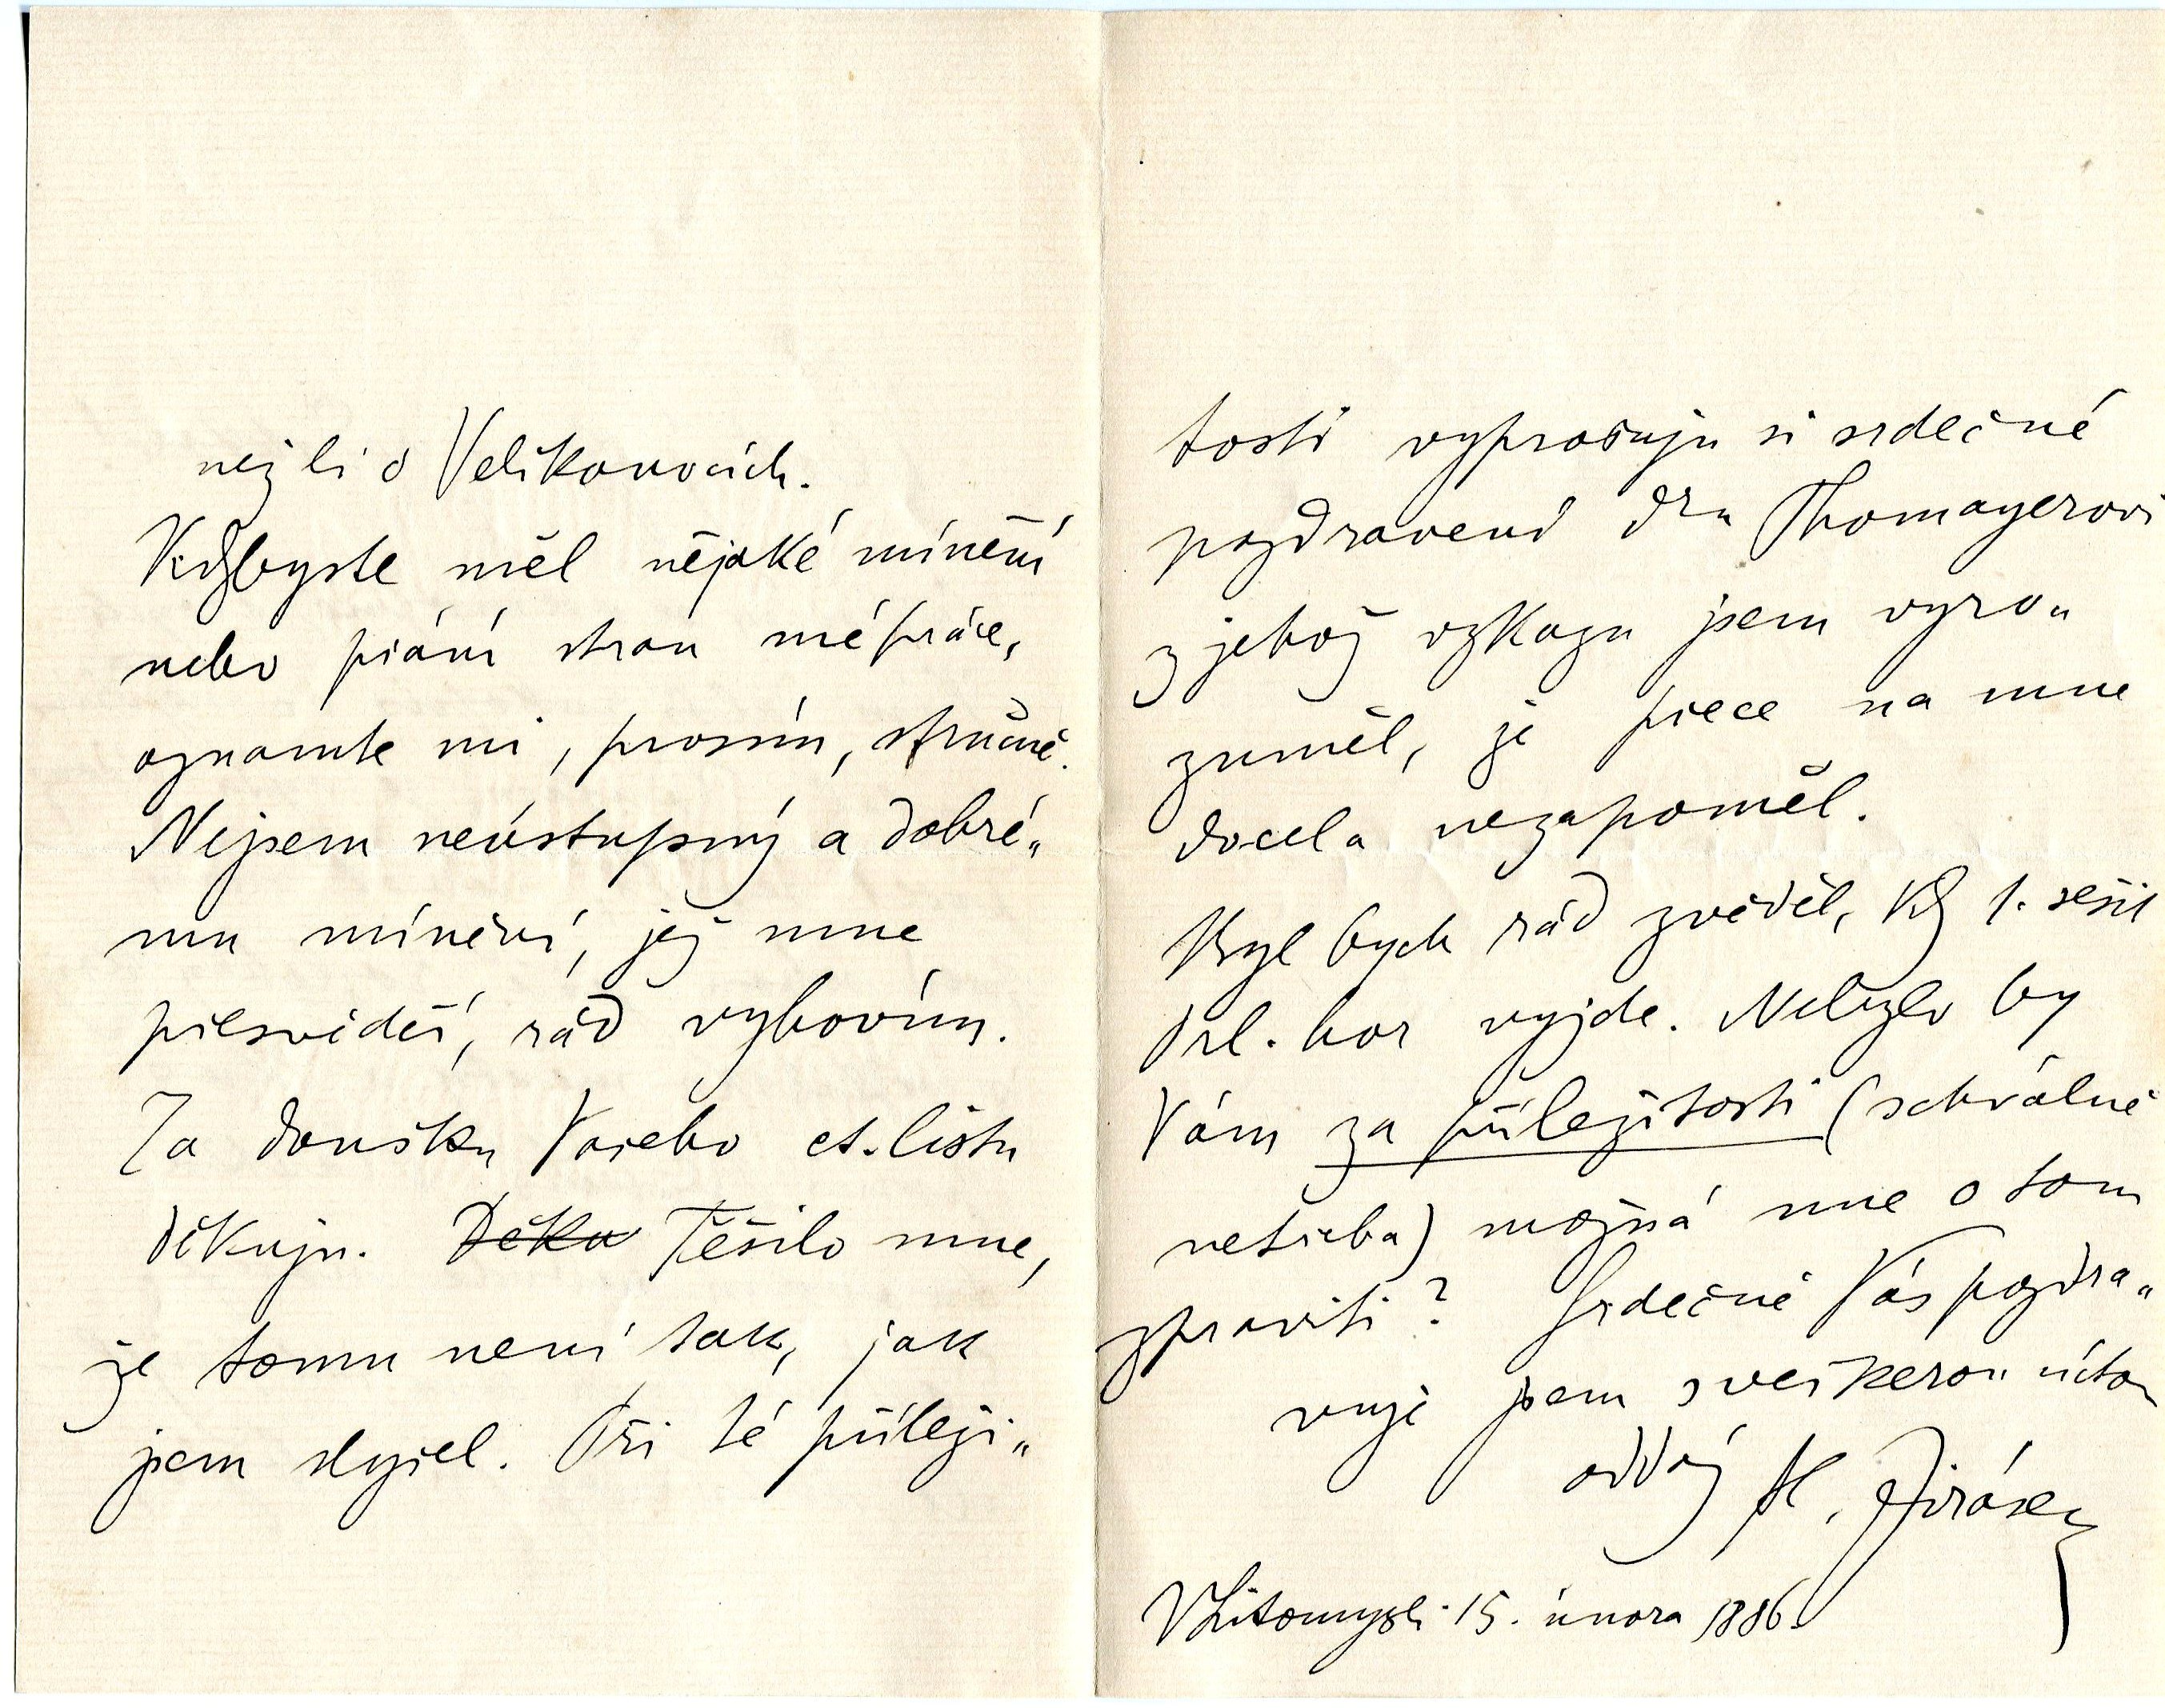 nežli o Velikonocích.
Kdybyste měl nějaké mínění
nebo přání stran mé práce,
oznamte mi, prosím, stručně.
Nejsem neústupný a dobré„
mu mínění, jež mne
přesvědčí, rád vyhovím.
Za doušku Vašeho ct. listu
děkuju. Děku Těšilo mne,
že tomu není tak, jak
jsem slyšel. Při té příleži„
tosti vyprošuju si srdečné
pozdravení dru Thomayerovi
z jehož vzkazu jsem vyro„
zuměl, že přece na mne
docela nezapoměl.
Byl bych rád zvěděl, kdy 1. sešit
vyjde. Nebylo by
Vám za příležitosti (schválně
netřeba) možná mne o tom
zpraviti? Srdečně Vás pozdra„
vuje jsem s veškerou úctou
oddaný Al. Jirásek
V Litomyšli 15. února 1886.